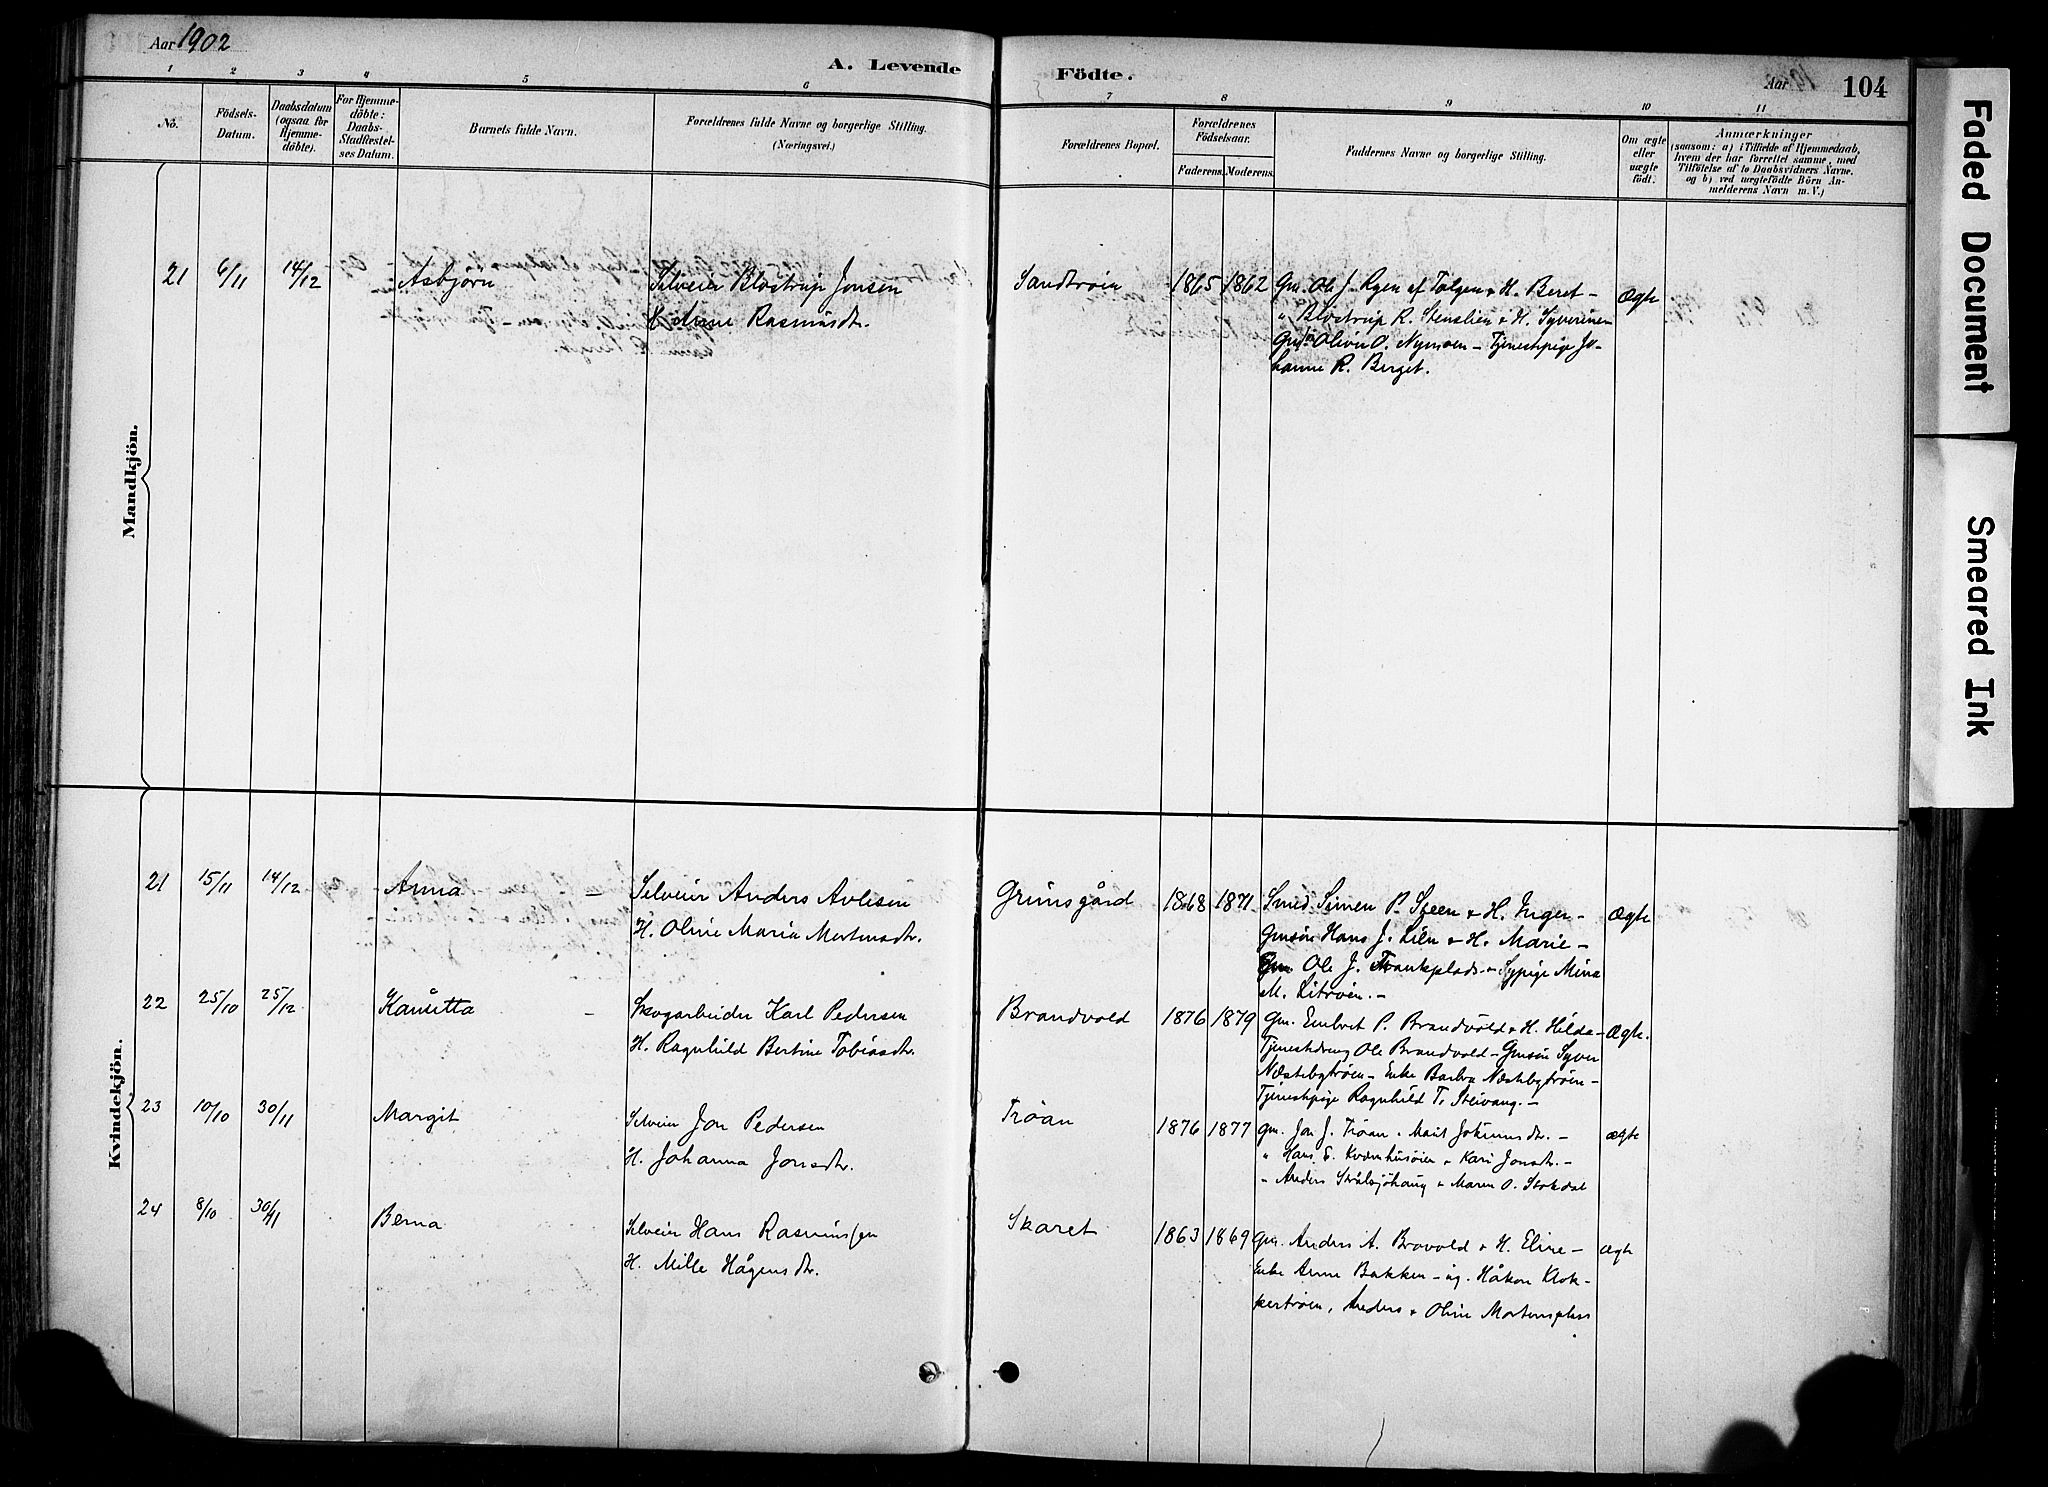 Aar 1902
A. Levende Födte.
Aar 104
1 2 3 4 5 6 7 8 9 10 11
No.
Födsels-
Datum.
Daabsdatum
(ogsaa for
Hjemme-
döbte).
For Hjemme-
döbte:
Daabs-
Stadfæstel-
ses Datum.
Barnets fulde Navn.
Forældrenes fulde Navne og borgerlige Stilling.
(Næringsvei.)
Forældrenes Bopæl.
Forældrenes
Födselsaar.
Faderens. Moderens.
Faddernes Navne og borgerlige Stilling.
Om ægte
eller
uægte
födt.
Anmærkninger
(saasom: a) i Tilfælde af Hjemmedaab,
hvem der har forrettet samme, med
Tilföielse af to Daabsvidners Navne.
og b) ved uægtefödte Börn An-
melderens Navn m. V.)
Mandkjön.
21 6/11 14/12 Asbjörn Selveier Blostrup Jonsen
H. Anne Rasmusdtr.
Sandtröen 1865 1862 Gm. Ole J. Ryen af Tolgen & H. Beret -
" Blostrup R. Stenslien & H. Syverine -
Oliver O. Nymoen - Tjenestpige Jo-
hanne R. Berget.
Ægte
Kvindekjön.
21 15/11 14/12 Anna - Selveier Anders Avlesen
H. Oline Maria Mortensdtr.
Grimsgård 1868 1871 Smed Simen P. Steen & H. Inger -
Gmsön Hans J. Lien & H. Marie -
Gm Ole J. Trankplads - Sypige Mina
M. Litröen. -
Ægte
22 25/10 25/12 Kansitta - Skogarbeider Karl Pedersen
H. Ragnhild Bertine Tobiasdtr.
Brandvold 1876 1879 Gm. Embret P. Brandvold & H. Hilda -
Tjenestdreng Ole Brandvold - Gmsön Syver
Næstebytröen - Enke Barbra Næstebytröen -
Tjenestpige Ragnhild T. Steivang. -
Ægte.
23 10/10 30/11 Margit Selveier Jon Pedersen
H. Johanna Jonsdtr.
Tröan 1876 1877 gm. Jon J. Tröan. Marit Johannsdtr. -
" Hans E. Kvernhusöien & Kari Jonsdtr. -
- Anders Stralsjöhaug & Maren O. Stokdal
ægte
24 8/10 30/11 Berna Selveier Hans Rasmussen
H. Mille Hågensdtr.
Skaret 1863 1869 gm. Anders A. Brovold & H. Eline -
Enke Anne Bakken - ug. Håkon Klok-
kertröen, Anders & Oline Mortensplass
ægte
Faded Document
Smeared Ink